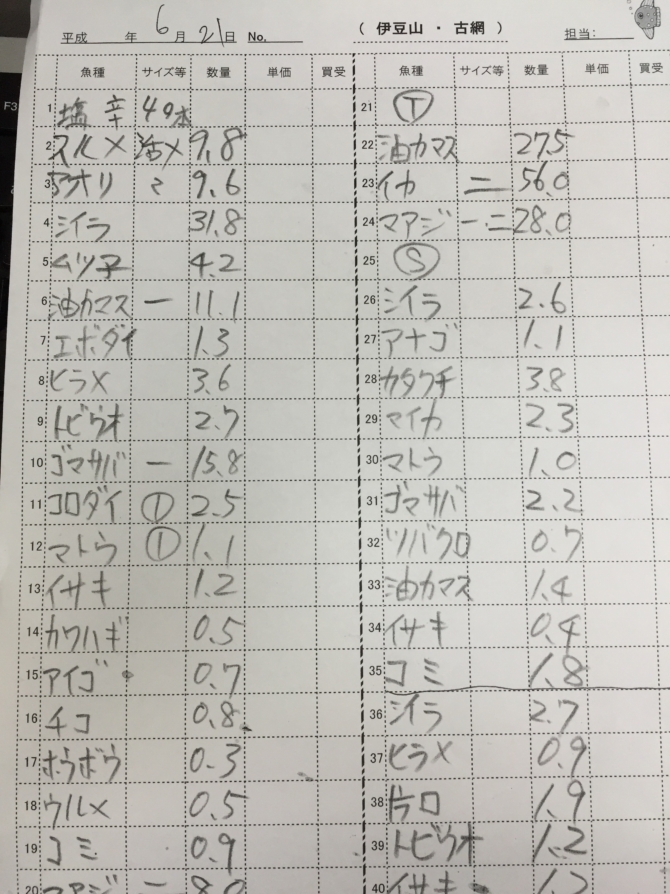 平成 年 6 月 21 日 No. ( 伊豆山 ・ 古網 ) 担当:
魚種 サイズ等 数量 単価 買受
1 塩辛 49本
2 スルメ 活〆 9.8
3 アオリ 〻 9.6
4 シイラ 31.8
5 ムツ子 4.2
6 油カマス 一 11.1
7 エボダイ 1.3
8 ヒラメ 3.6
9 トビウオ 2.7
10 ゴマサバ 一 15.8
11 コロダイ ① 2.5
12 マトウ ① 1.1
13 イサキ 1.2
14 カワハギ 0.5
15 アイゴ 0.7
16 チコ 0.8
17 ホウボウ 0.3
18 ウルメ 0.5
19 コミ 0.9
20 マアジ 一 8.0
魚種 サイズ等 数量 単価 買受
21 Ⓣ
22 油カマス 27.5
23 イカ 二 56.0
24 マアジ 一.二 28.0
25 Ⓢ
26 シイラ 2.6
27 アナゴ 1.1
28 カタクチ 3.8
29 マイカ 2.3
30 マトウ 1.0
31 ゴマサバ 2.2
32 ツバクロ 0.7
33 油カマス 1.4
34 イサキ 0.4
35 コミ 1.8
36 シイラ 2.7
37 ヒラメ 0.9
38 片口 1.9
39 トビウオ 1.2
40 イサキ 1.2
F3